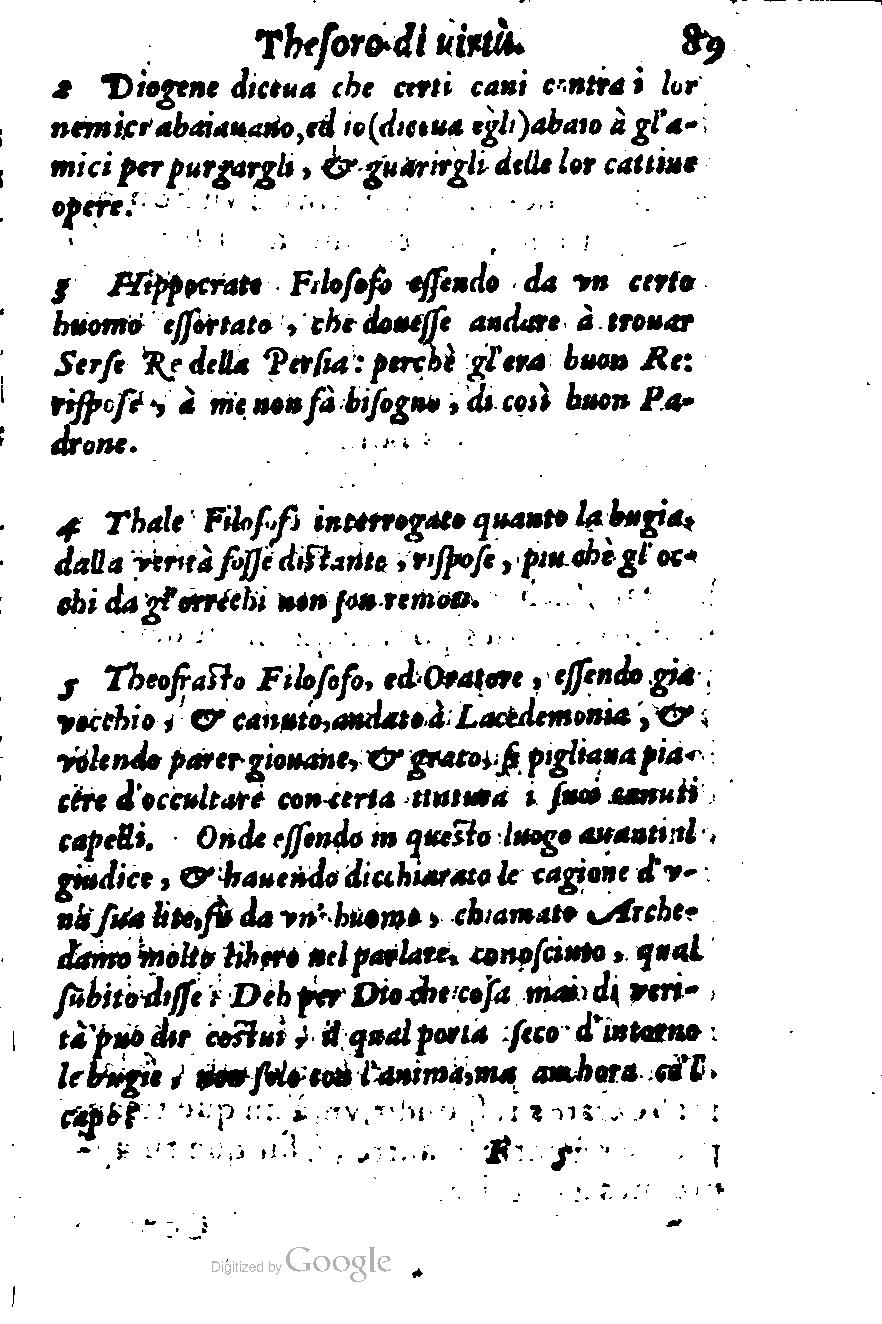 Thesoro di uirtù. 89
2 Diogene diceua che certi cani contra i lor
nemici abaiauano, ed io (diceua egli) abaio à gl'a-
mici per purgargli, & guarirgli delle lor cattiue
opere.
3 Hippocrate Filosofo essendo da vn certo
huomo essortato, che douesse andare à trouar
Serse Re della Persia: perchè gl'era buon Re:
rispose, à me non fà bisogno, di così buon Pa-
drone.
4 Thale Filosofo interrogato quanto la bugia,
dalla verità fosse distante, rispose, piu chè gl'oc-
chi da gl'orrechi non son remoti.
5 Theofrasto Filosofo, ed Oratore, essendo gia
vecchio, & canuto, andato à Lacedemonia, &
volendo parer giouane, & grato, si pigliaua pia-
cere d'occultare con certa tintura i suoi canuti
capelli. Onde essendo in questo luogo auanti il
giudice, & hauendo dicchiarato le cagione d'v-
na sua lite, fù da vn' huomo, chiamato Arche-
damo molto libero nel parlare, conosciuto, qual
subito disse: Deh per Dio che cosa mai di veri-
tà può dir costui, il qual porta seco d'intorno
le bugie, non solo con l'anima, ma anchora co'l
capo?
F 5
Digitized by Google